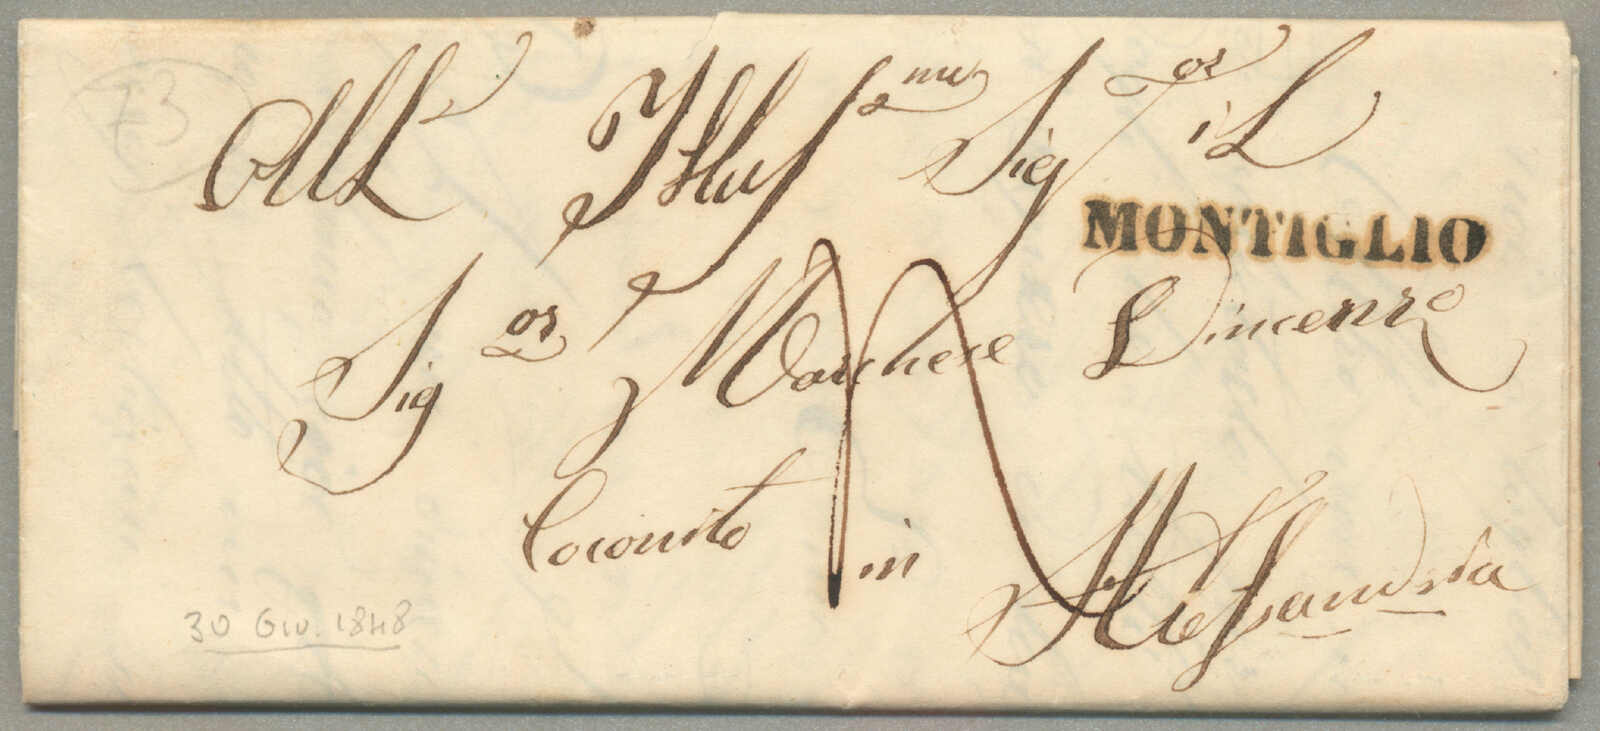 73
All' Illus^mo Sig^or il
MONTIGLIO
Sig^or Marchese Vincenzo
Coconito in
Alessandria
30 GIU. 1848